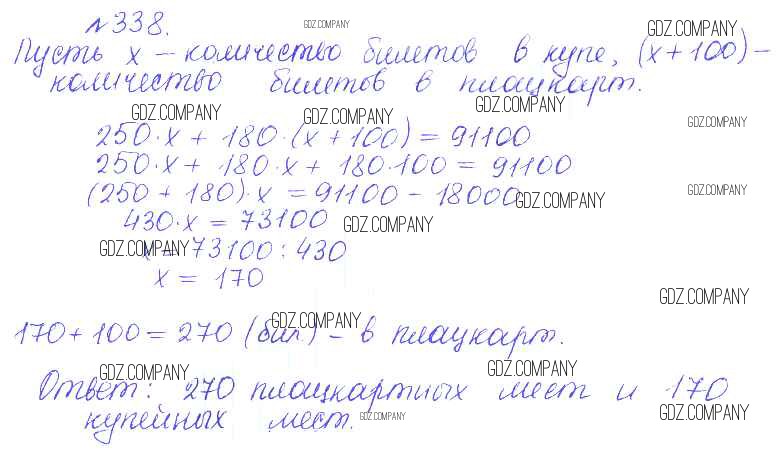 №338. GDZ.COMPANY GDZ.COMPANY
Пусть x – количество билетов в купе, (x + 100) –
количество билетов в плацкарт.
GDZ.COMPANY GDZ.COMPANY GDZ.COMPANY GDZ.COMPANY
250·x + 180·(x + 100) = 91100
250·x + 180·x + 180·100 = 91100
(250 + 180)·x = 91100 – 18000 GDZ.COMPANY GDZ.COMPANY
430·x = 73100 GDZ.COMPANY
x = 73100 : 430 GDZ.COMPANY
x = 170
GDZ.COMPANY
170 + 100 = 270 (бил.) – в плацкарт. GDZ.COMPANY
GDZ.COMPANY GDZ.COMPANY
Ответ: 270 плацкартных мест и 170
купейных мест. GDZ.COMPANY GDZ.COMPANY